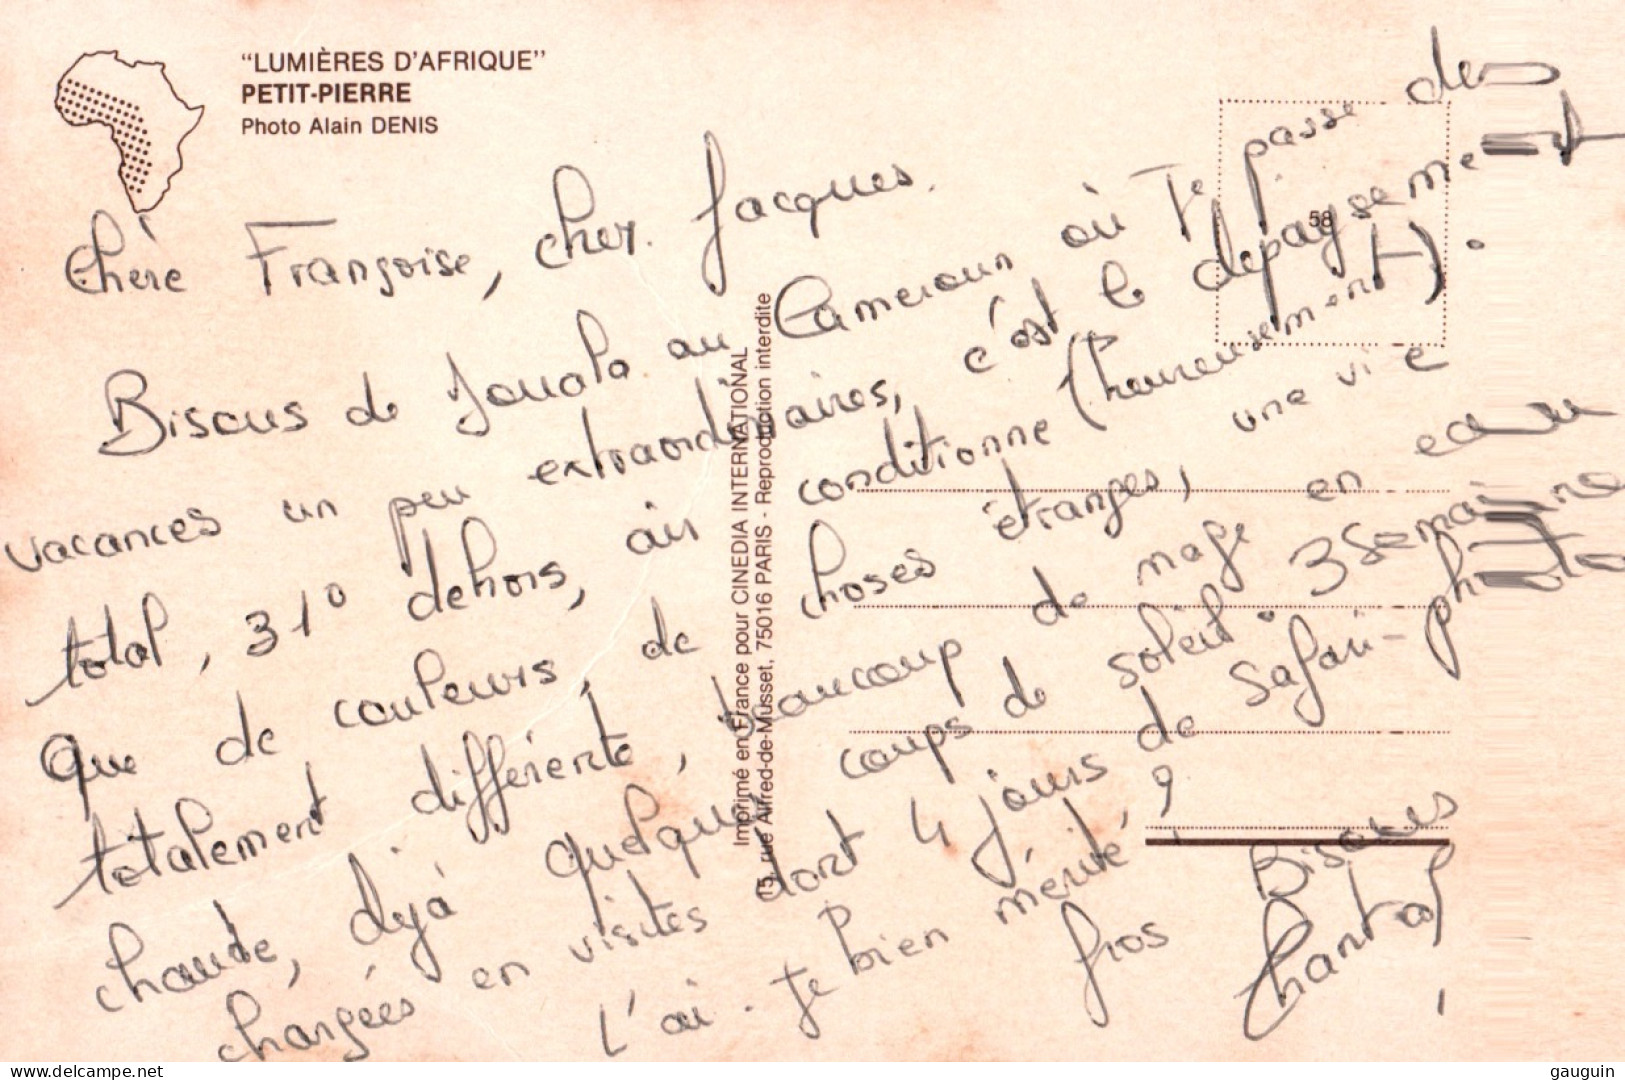 "LUMIÈRES D'AFRIQUE"
PETIT-PIERRE
Photo Alain DENIS
58
Chère Françoise, cher Jacques.
Bisous de Douala au Cameroun où Je passe des
vacances un peu extraordinaires, c'est le dépaysement
total, 31° dehors, air conditionné (heureusement !).
Que de couleurs, de choses étranges, une vie
totalement différente, beaucoup de nage en eau
chaude, déjà quelques coups de soleil. 3 semaines
chargées en visites dont 4 jours de Safari-photo
l'ai-Je bien mérité ?
Gros Bisous
Chantal
Imprimé en France pour CINEDIA INTERNATIONAL
15, rue Alfred-de-Musset, 75016 PARIS - Reproduction interdite
delcampe.net
gauguin